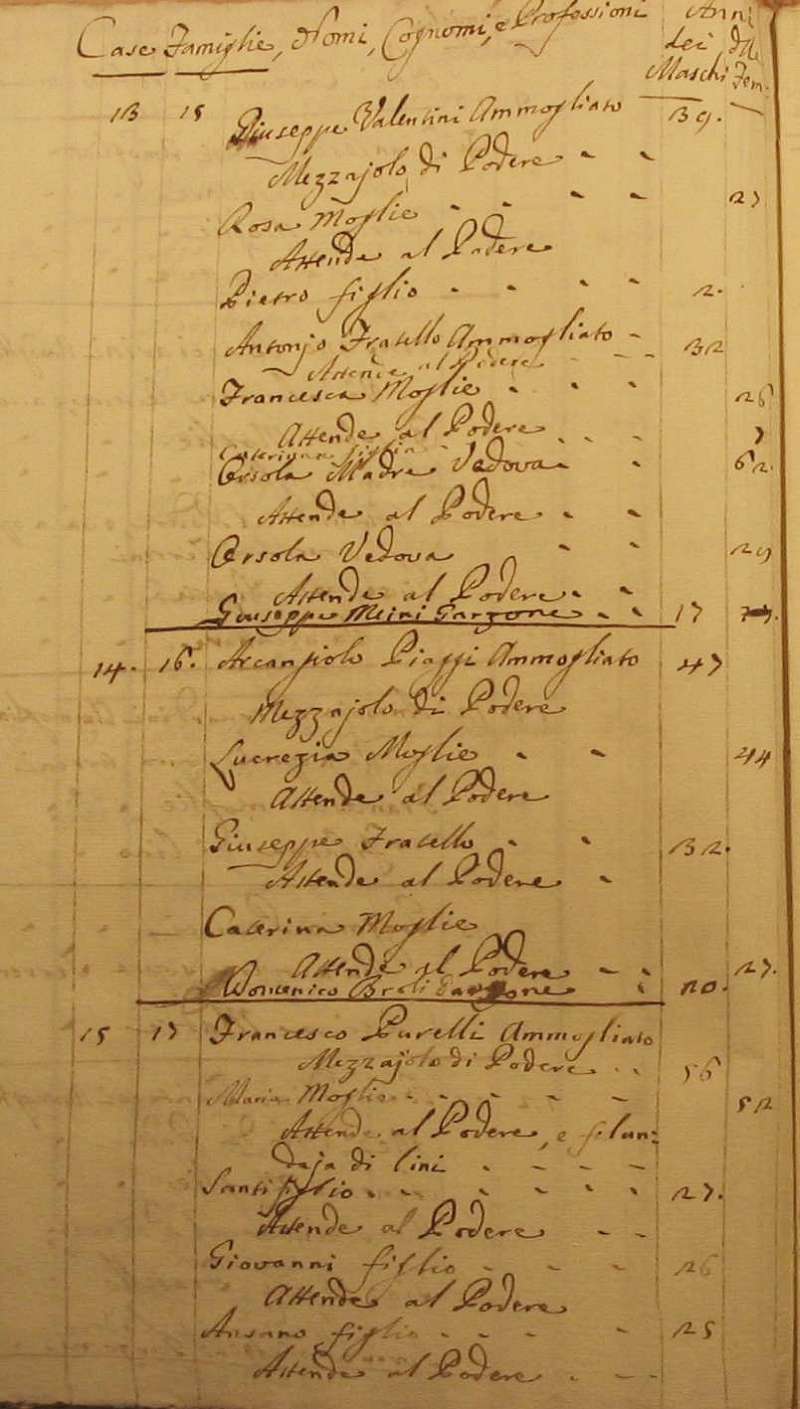 Case Famiglie, Nomi, Cognomi, e Professioni Anni
dei delle
Maschi Fem.
13 15 Giuseppe Valentini Ammogliato 39.
Mezzajolo di Podere
Rosa Moglie 27
Attende al Podere
Pietro figlio 2.
Antonjo Fratello Ammogliato 32
Attende al Podere
Francesca Moglie 26
Attende al Podere
Caterina figlia 7
Orsola Madre Vedova 62.
Attende al Podere
Orsola Vedova 29
Attende al Podere
Giuseppe Meini Garzone 17
14. 16. Arcangiolo Piazzi Ammogliato 47
Mezzajolo di Podere
Lucrezia Moglie 44
Attende al Podere
Giuseppe Fratello 32.
Attende al Podere
Caterina Moglie
Attende al Podere 27.
Domenico Garzone 20.
15 17 Francesco Purelli Ammogliato
Mezzajolo di Podere 56
Maria Moglie 52
Attende al Podere, e filan:
daja di lini
Santi figlio 27.
Attende al Podere
Giovanni figlio 26
Attende al Podere
Ansano figlio 25
Attende al Podere